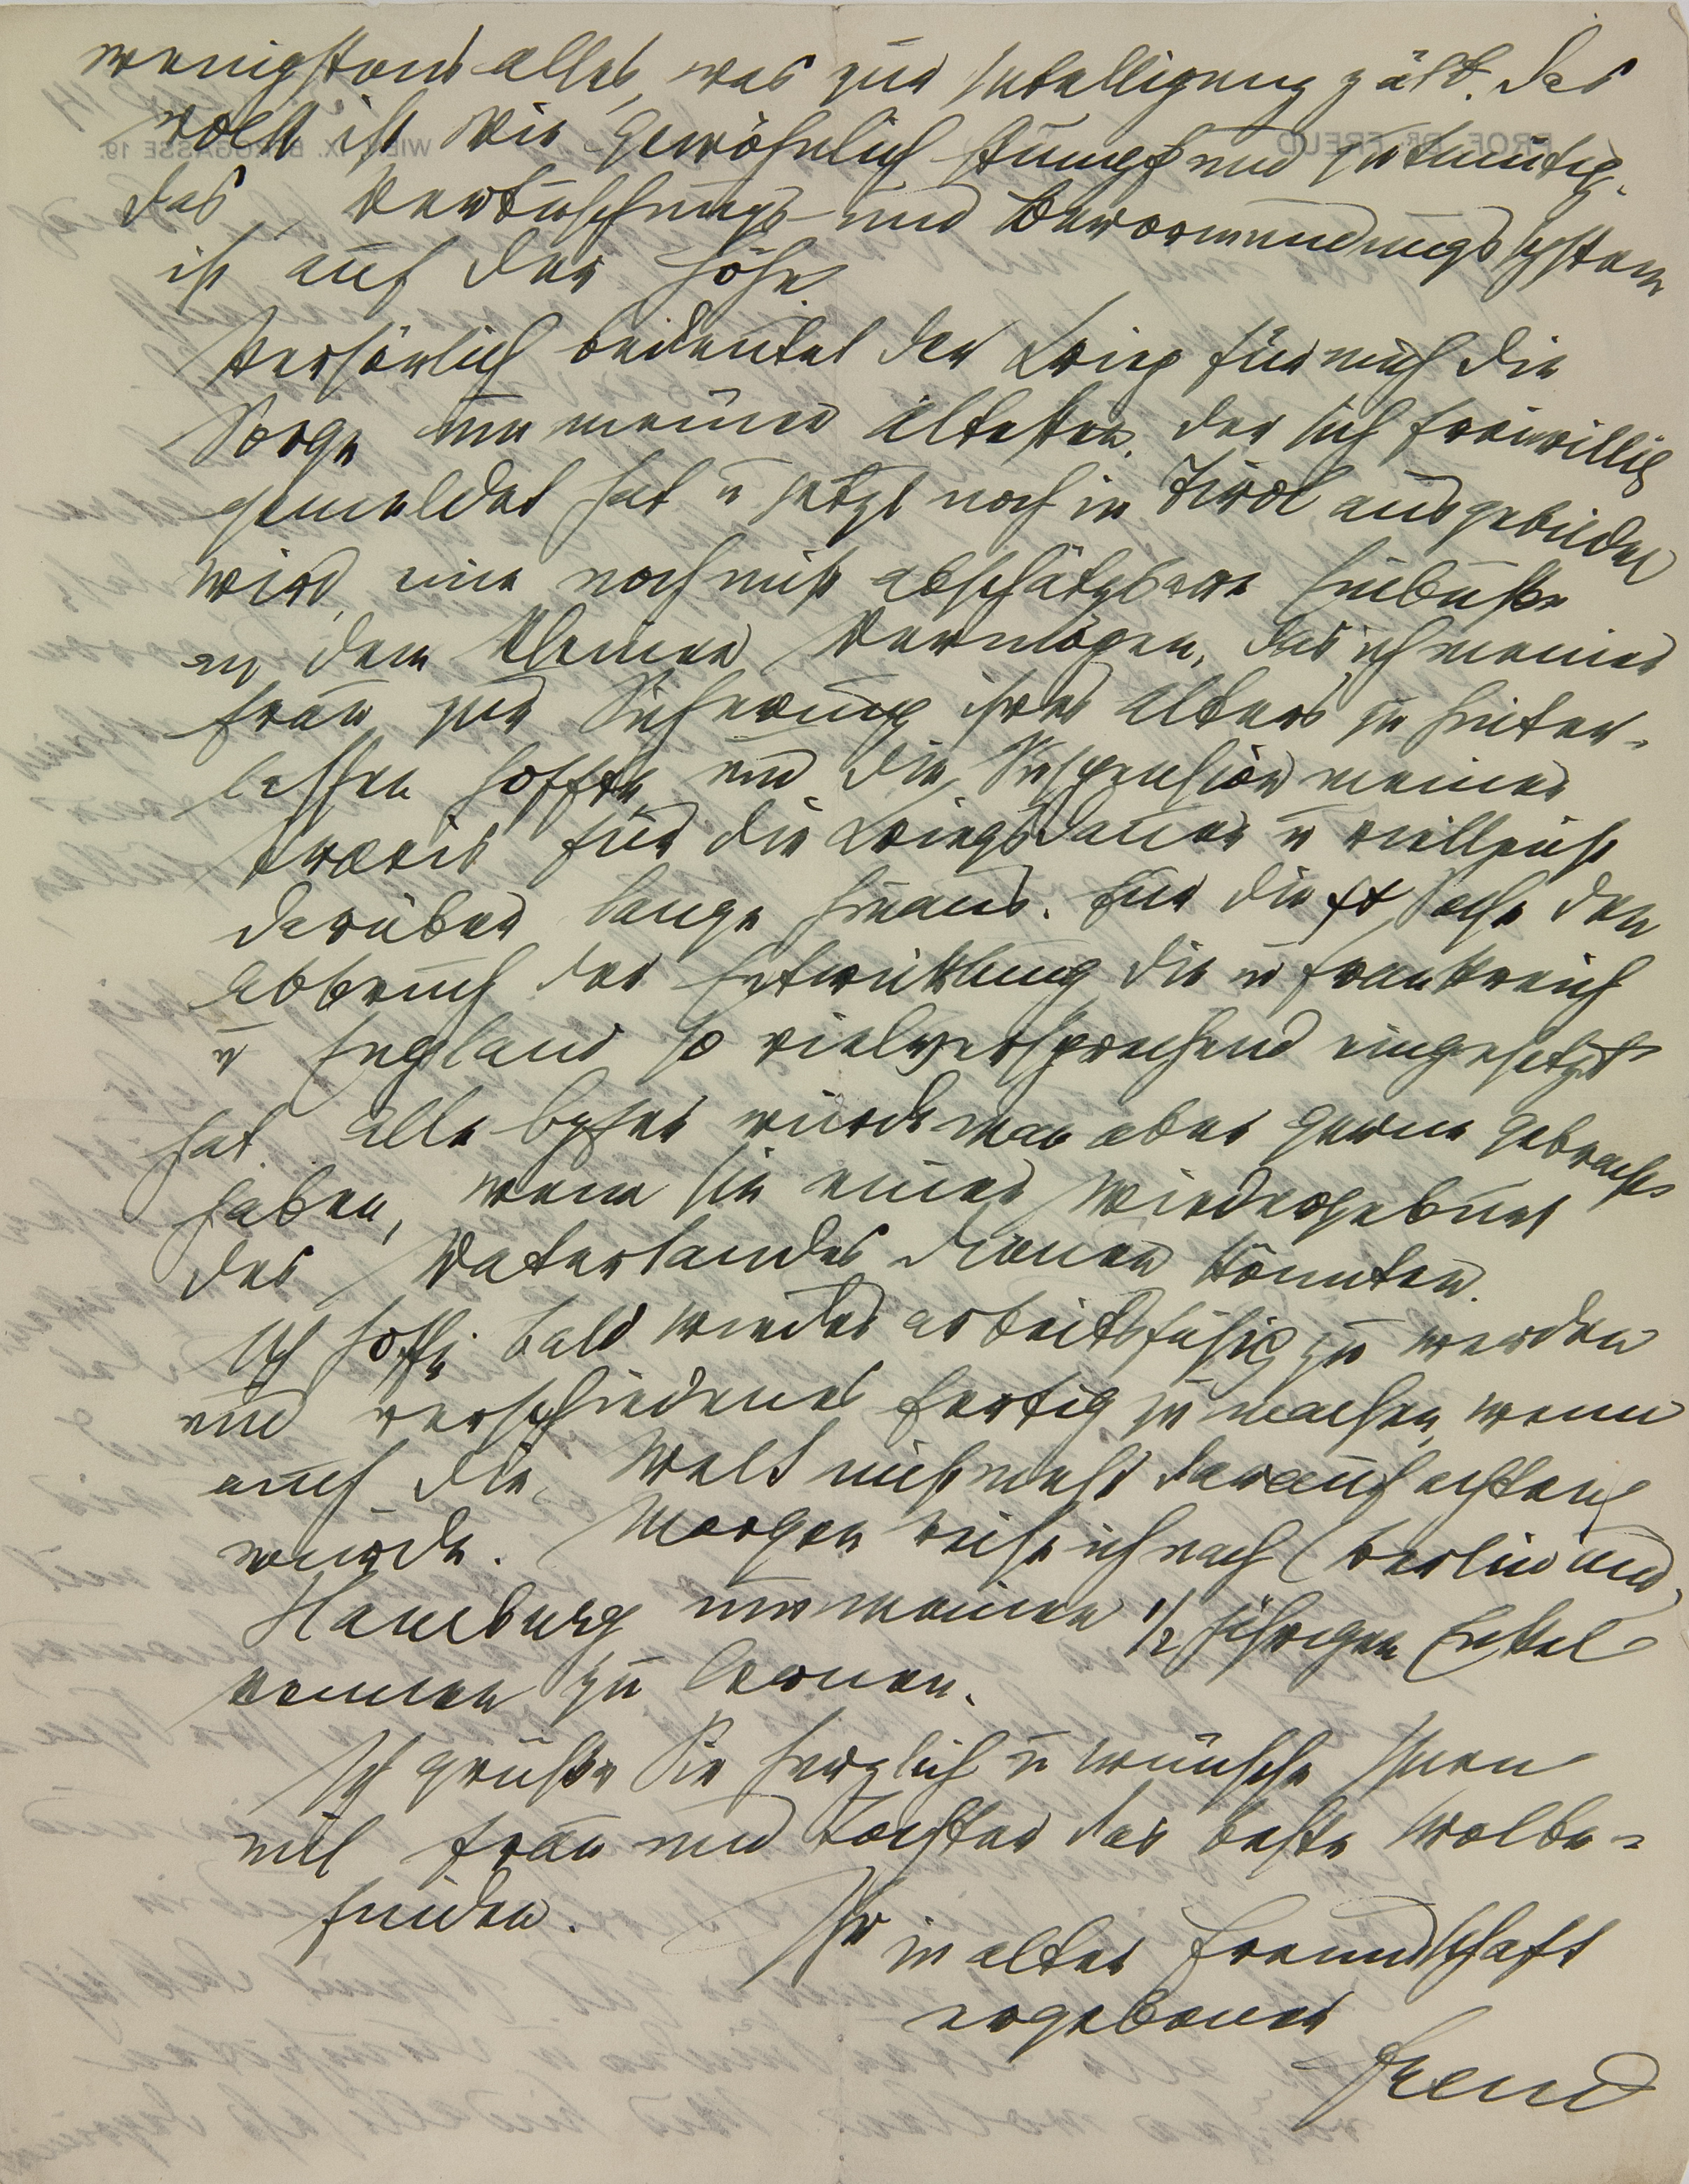 wenigstens alles, was zur Intelligenz zält. Das
Volk ist wie gewöhnlich stumpf und gutmütig.
Das Vertuschungs- und Bevormundungssystem
ist auf der Höhe.
Persönlich bedeutet der Krieg für mich die
Sorge um meinen Ältesten, der sich freiwillig
gemeldet hat u jetzt noch in Tirol ausgebildet
wird, eine noch nicht abschätzbare Einbuße
an dem kleinen Vermögen, das ich meiner
Frau zur Sicherung ihres Alters zu hinter-
lassen hoffte, und die Suspension meiner
Praxis für die Kriegsdauer u vielleicht
darüber lange hinaus. Für die Sache den
Abbruch der Entwicklung die in Frankreich
u England so vielversprechend eingesetzt
hat. Alle Opfer würde man aber gerne gebracht
haben, wenn sie einer Wiedergeburt
des Vaterlandes dienen könnten.
Ich hoffe bald wieder arbeitsfähig zu werden
und verschiedenes fertig zu machen, wenn
auch die Welt nicht mehr darauf achten
würde. Morgen reise ich nach Berlin und
Hamburg um meinen 1/2 jährigen Enkel
kennen zu lernen.
Ich grüße Sie herzlich u wünsche Ihnen
mit Frau und Tochter das beste Wolbe-
finden.
Ihr in alter Freundschaft
ergebener
Freud
PROF. DR. FREUD WIEN, IX. BERGGASSE 19.